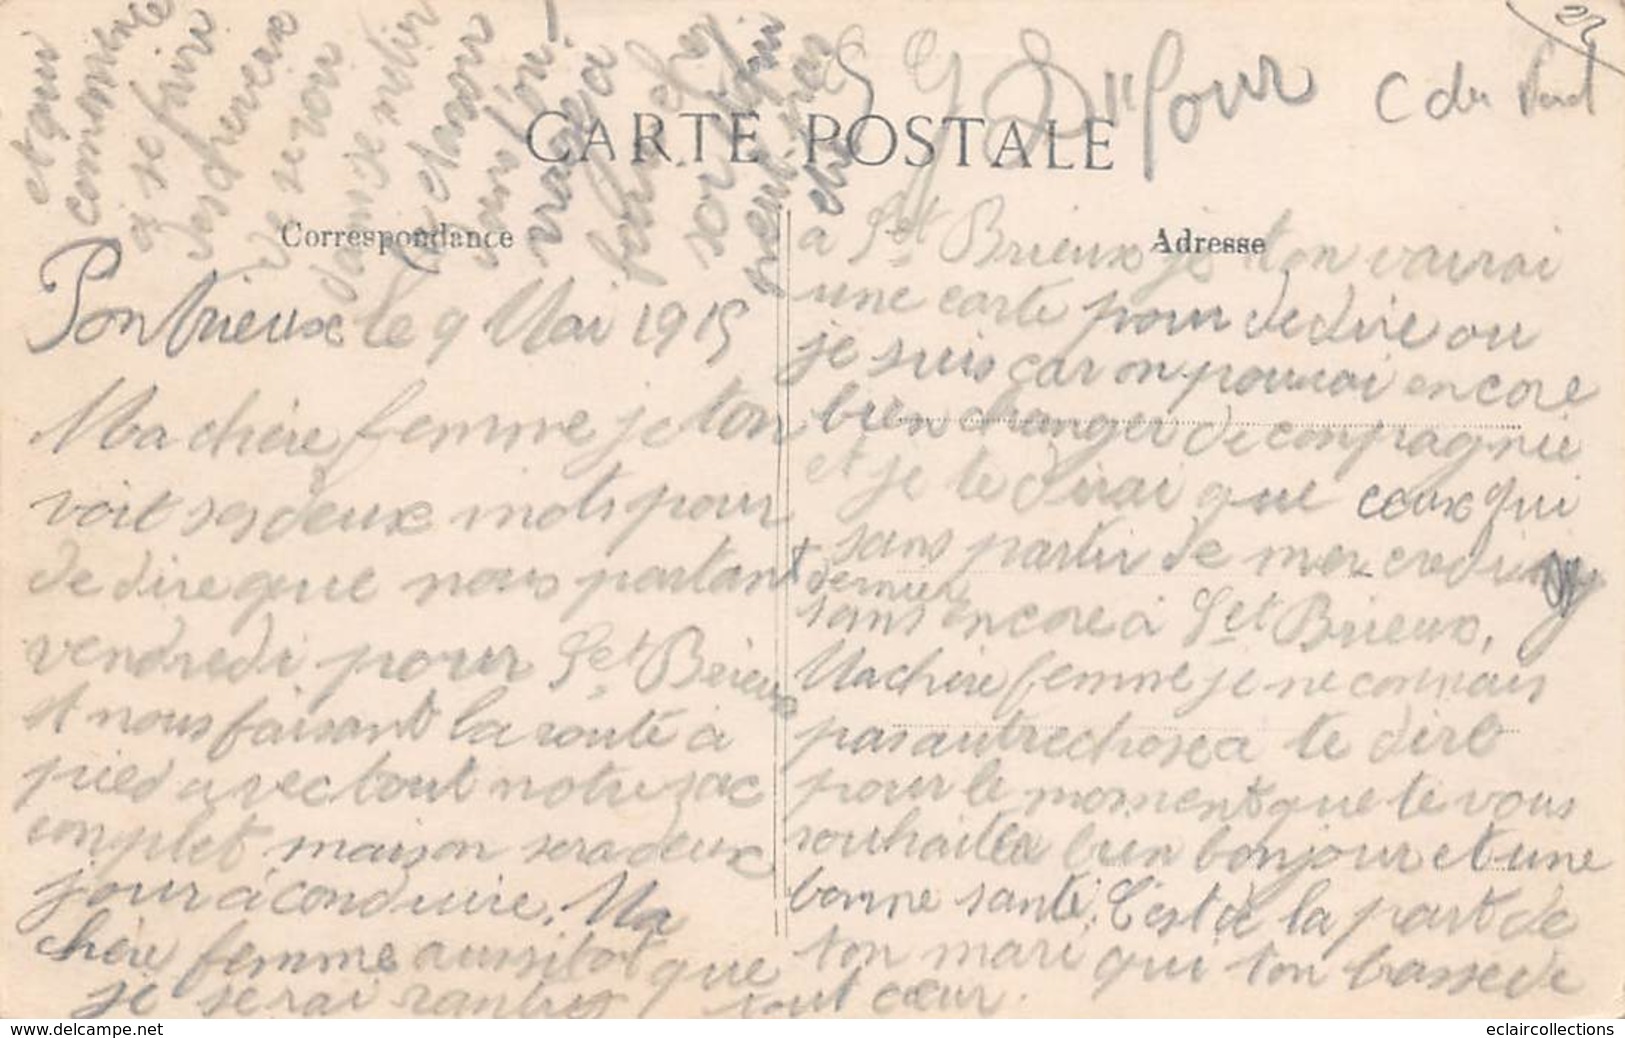 22
C du Nord
CARTE POSTALE
Correspondance
Adresse
Pontrieux le 9 Mai 1915
Ma chère femme je ton
voit ses deux mots pour
de dire que nous partant
vendredi pour St Brieux
et nous faisant la route à
pied avec tout notre sac
complet maison sera deux
jour à conduire. Ma
chère femme aussitot que
je serai rantres
à St Brieux je ton vairai
une carte pour de dire ou
je suis car on pourai encore
bien changer de compagnie
et je te dirai que ceux qui
sans partir de mercredi
dernier
sans encore à St Brieux,
Ma chère femme je ne connais
pas autre chose a te dire
pour le moment que te vous
souhaiter bien bonjour et une
bonne santé. C'est de la part de
ton mari qui ton brasse de
tout cœur.
et qui
commence
a se faire
des cheveux
de se voir
dans se métir
la et savoir
dans l'on!
vraie ja
sort qui
www.delcampe.net
eclaircollections